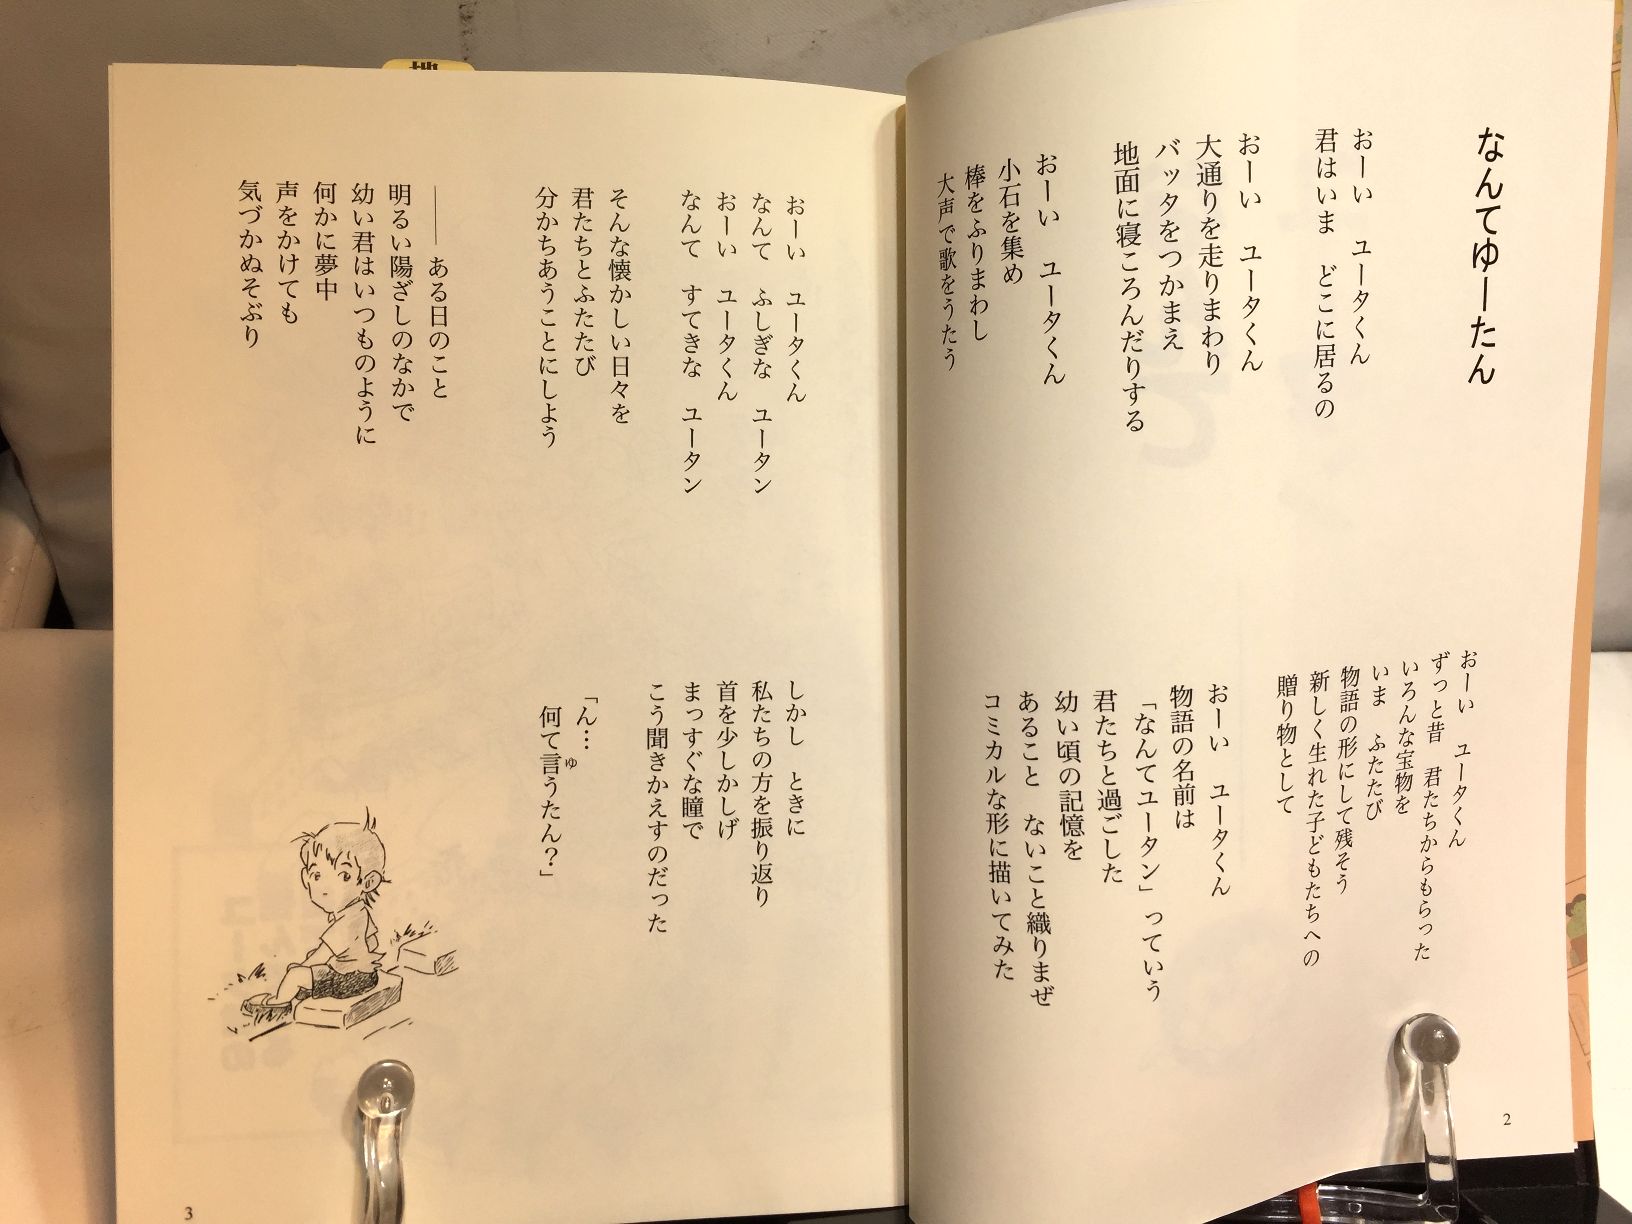 なんてゆーたん
おーい　ユータくん
君はいま　どこに居るの
おーい　ユータくん
大通りを走りまわり
バッタをつかまえ
地面に寝ころんだりする
おーい　ユータくん
小石を集め
棒をふりまわし
大声で歌をうたう
おーい　ユータくん
ずっと昔　君たちからもらった
いろんな宝物を
いま　ふたたび
物語の形にして残そう
新しく生れた子どもたちへの
贈り物として
おーい　ユータくん
物語の名前は
「なんてユータン」っていう
君たちと過ごした
幼い頃の記憶を
あること　ないこと織りまぜ
コミカルな形に描いてみた
2
おーい　ユータくん
なんて　ふしぎな　ユータン
おーい　ユータくん
なんて　すてきな　ユータン
そんな懐かしい日々を
君たちとふたたび
分かちあうことにしよう
――　ある日のこと
明るい陽ざしのなかで
幼い君はいつものように
何かに夢中
声をかけても
気づかぬそぶり
しかし　ときに
私たちの方を振り返り
首を少しかしげ
まっすぐな瞳で
こう聞きかえすのだった
「ん…
何て言うたん？」
ゆ
3